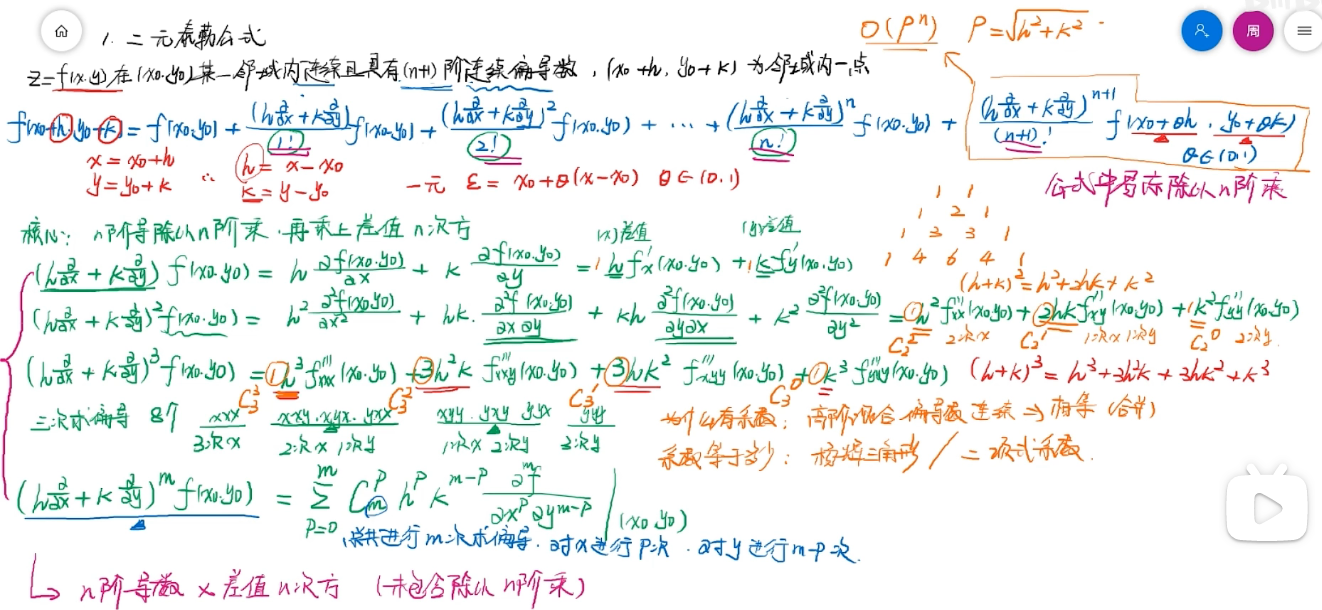 1. 二元泰勒公式
O(ρⁿ) ρ=√(h²+k²)
周
z=f(x.y)在(x0.y0)某一邻域内连续且具有(n+1)阶连续偏导数，(x0+h, y0+k)为邻域内一点
f(x0+h, y0+k) = f(x0.y0) + (h∂/∂x + k∂/∂y)/1! f(x0.y0) + (h∂/∂x + k∂/∂y)²/2! f(x0.y0) + ⋯ + (h∂/∂x + k∂/∂y)ⁿ/n! f(x0.y0) + (h∂/∂x + k∂/∂y)ⁿ⁺¹/(n+1)! f(x0+θh, y0+θk)
θ∈(0.1)
x = x0+h ∴ h = x-x0
y = y0+k k = y-y0
一元 ε = x0+θ(x-x0) θ∈(0.1)
公式中另除以n阶乘
核心: n阶导除以n阶乘.再乘上差值n次方
(x)差值 (y)差值
1 1
1 2 1
1 3 3 1
1 4 6 4 1
(h∂/∂x + k∂/∂y) f(x0.y0) = h ∂f(x0.y0)/∂x + k ∂f(x0.y0)/∂y = 1hf'x(x0.y0) + 1kf'y(x0.y0)
(h+k)² = h²+2hk+k²
(h∂/∂x + k∂/∂y)² f(x0.y0) = h² ∂²f(x0.y0)/∂x² + hk.∂²f(x0.y0)/∂x∂y + kh ∂²f(x0.y0)/∂y∂x + k² ∂²f(x0.y0)/∂y² = 1h²f''xx(x0.y0) + 2hkf''xy(x0.y0) + 1k²f''yy(x0.y0)
C₂² 2次x C₂¹ 1次x1次y C₂⁰ 2次y
(h∂/∂x + k∂/∂y)³ f(x0.y0) = 1h³f'''xxx(x0.y0) + 3h²k f'''xxy(x0.y0) + 3hk² f'''xyy(x0.y0) + 1k³f'''yyy(x0.y0) (h+k)³ = h³+3h²k+3hk²+k³
C₃³ C₃² C₃¹ C₃⁰
三次求偏导 8个 xxx xxy.xyx.yxx xyy.yxy yyx yyy
3次x 2次x1次y 1次x2次y 3次y
为什么有系数: 高阶混合偏导数连续 ⇒ 相等(合并)
系数等于多少: 杨辉三角形 / 二项式系数.
(h∂/∂x + k∂/∂y)ᵐ f(x0.y0) = Σ(p=0, m) Cₘᵖ hᵖ kᵐ⁻ᵖ ∂ᵐf/∂xᵖ∂yᵐ⁻ᵖ |(x0.y0)
总共进行m次求偏导.对x进行p次.对y进行m-p次.
↳ n阶导数 × 差值n次方 (未包含除以n阶乘)